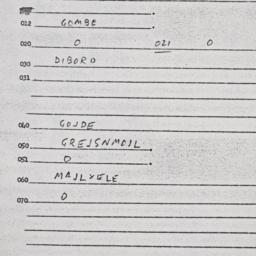 012 GOMBE
020 0 021 0
030 DIBORO
031
040 GOJDE
050 GREJSNMOJL
052 0
060 MAJLXELE
070 0